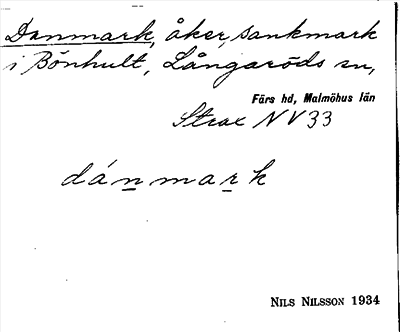 Danmark, åker, sankmark
i Bönhult, Långaröds sn,
Färs hd, Malmöhus län
Strax NV33
dánmark
NILS NILSSON 1934